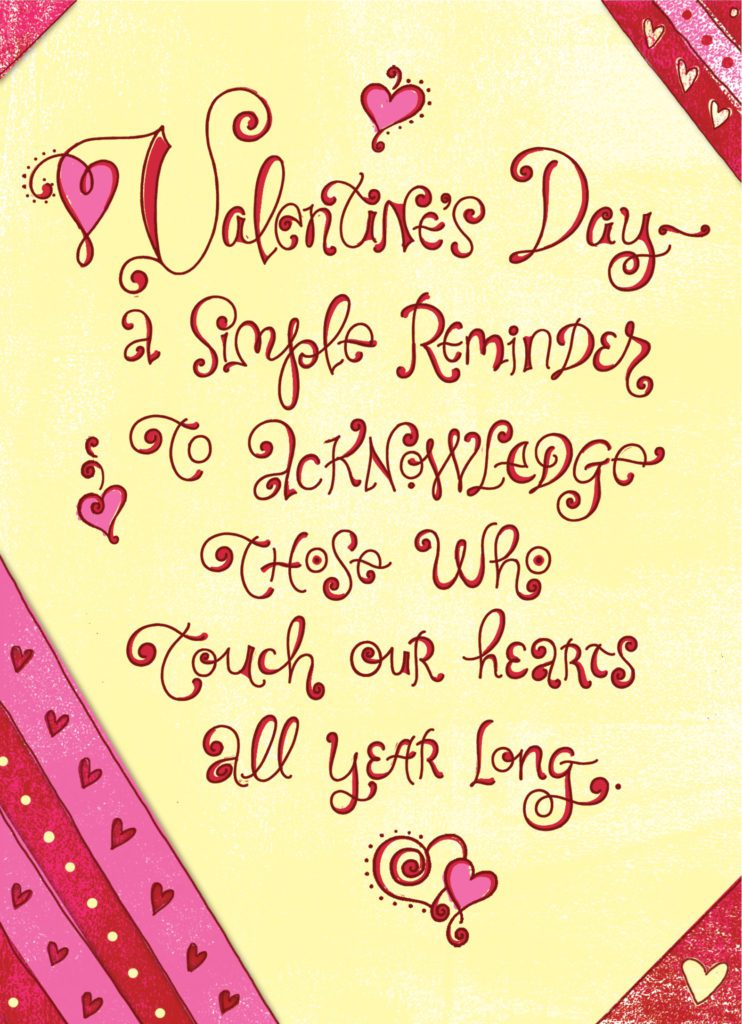 Valentine's Day~
a simple Reminder
to acknowledge
those who
touch our hearts
all year long.